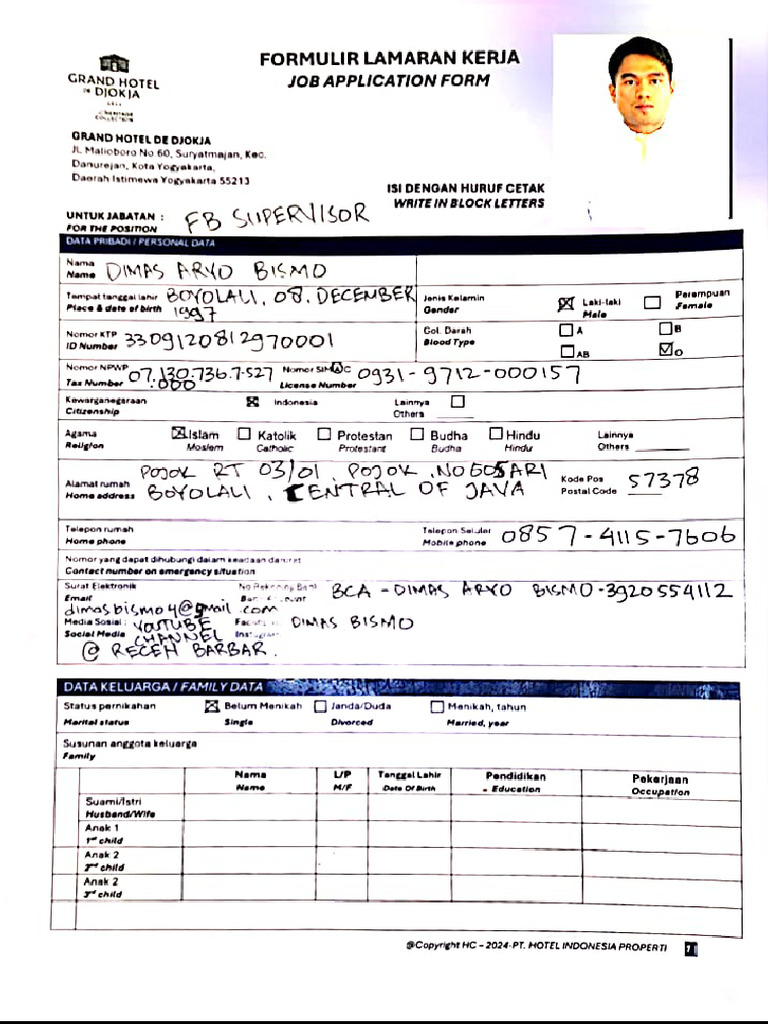 FORMULIR LAMARAN KERJA
JOB APPLICATION FORM
GRAND HOTEL
DE DJOKJA
HERITAGE
COLLECTION
GRAND HOTEL DE DJOKJA
Jl. Malioboro No 60, Suryatmajan, Kec.
Danurejan, Kota Yogyakarta,
Daerah Istimewa Yogyakarta 55213
ISI DENGAN HURUF CETAK
WRITE IN BLOCK LETTERS
UNTUK JABATAN : FB SUPERVISOR
FOR THE POSITION
DATA PRIBADI / PERSONAL DATA
Nama
Name DIMAS ARYO BISMO
Tempat tanggal lahir BOYOLALI, 08. DECEMBER
Place & date of birth 1997
Jenis Kelamin Laki-laki Perempuan
Gender Male Female
Nomor KTP 3309120812970001
ID Number
Gol. Darah A B
Blood Type AB O
Nomor NPWP 07.130.736.7-527 Nomor SIM A C 0931-9712-000157
Tax Number .000 License Number
Kewarganegaraan Indonesia Lainnya
Citizenship Others
Agama Islam Katolik Protestan Budha Hindu Lainnya
Religion Moslem Catholic Protestant Budha Hindu Others
Alamat rumah POJOK RT 03/01, POJOK, NOGOSARI
Home address BOYOLALI, CENTRAL OF JAVA
Kode Pos 57378
Postal Code
Telepon rumah Telepon Seluler 0857-4115-7606
Home phone Mobile phone
Nomor yang dapat dihubungi dalam keadaan darurat
Contact number on emergency situation
Surat Elektronik No Rekening Bank BCA - DIMAS ARYO BISMO-3920554112
Email Bank Account
dimasbismo4@gmail.com
Media Sosial : YOUTUBE DIMAS BISMO
Social Media CHANNEL
@ RECEH BARBAR.
DATA KELUARGA / FAMILY DATA
Status pernikahan Belum Menikah Janda/Duda Menikah, tahun
Marital status Single Divorced Married, year
Susunan anggota keluarga
Family
Nama L/P Tanggal Lahir Pendidikan Pekerjaan
Name M/F Date Of Birth Education Occupation
Suami/Istri
Husband/Wife
Anak 1
1st child
Anak 2
2nd child
Anak 2
3rd child
@Copyright HC - 2024-PT. HOTEL INDONESIA PROPERTI 1